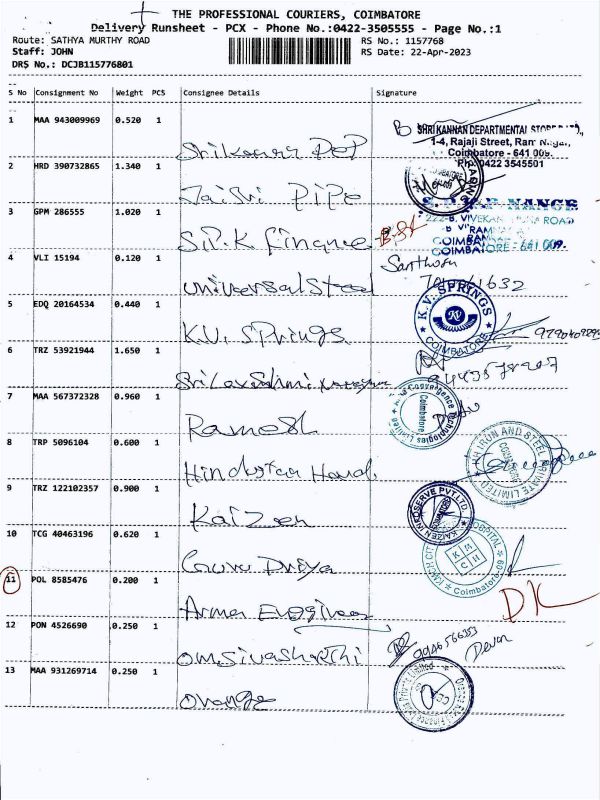 THE PROFESSIONAL COURIERS, COIMBATORE
Delivery Runsheet - PCX - Phone No.:0422-3505555 - Page No.:1
Route: SATHYA MURTHY ROAD
RS No.: 1157768
Staff: JOHN
RS Date: 22-Apr-2023
DRS No.: DCJB115776801
S No Consignment No Weight PCS Consignee Details Signature
1 MAA 943009969 0.520 1 Srikannan Dep
SHRI KANNAN DEPARTMENTAL STORE
1-4, Rajaji Street, Ram Nagar,
Coimbatore - 641 009.
Ph: 0422 3545501
2 HRD 390732865 1.340 1 Jaisri Pipe
3 GPM 286555 1.020 1 S.P.K Finance
222-B, VIVEKANANDA ROAD
RAM NAGAR
COIMBATORE - 641 009.
4 VLI 15194 0.120 1 Universal Steel
Santhosh
5 EDQ 20164534 0.440 1 K.V. Springs
K.V. SPRINGS
COIMBATORE
6 TRZ 53921944 1.650 1 Sri Laxshmi
7 MAA 567372328 0.960 1 Ramesh
Convergence Technologies Limited
Coimbatore
8 TRP 5096104 0.600 1 Hindustan Hand
IRON AND STEEL PRIVATE LIMITED
9 TRZ 122102357 0.900 1 Kaizen
KAIZEN INFOSERVE PVT LTD
10 TCG 40463196 0.620 1 Guru Priya
KMCH CITY HOSPITAL
Coimbatore-09
KMCH
11 POL 8585476 0.200 1 Arma Engineer
DK
12 PON 4526690 0.250 1 Omsivasakthi
9946566353
Devan
13 MAA 931269714 0.250 1 Orange